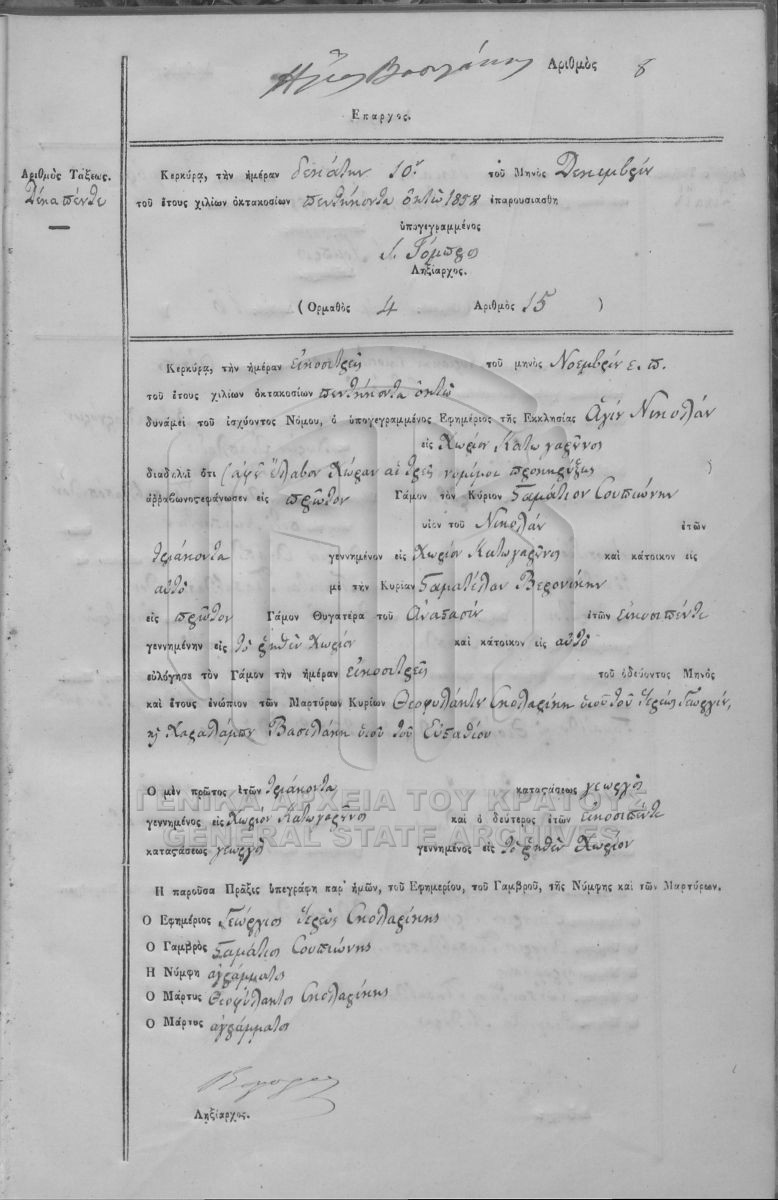 Ἀριθμὸς 8
Επαρχος.
Αριθμὸς Τάξεως.
Δέκα πέντε
Κερκύρα, τὴν ἡμέραν δεκάτην 10ην τοῦ Μηνὸς Δεκεμβρίου
τοῦ ἔτους χιλίων ὀκτακοσίων πεντήκοντα ὀκτὼ 1858 ἐπαρουσιασθη
ὑπογεγραμμένος
Ληξίαρχος.
(Ορμαθὸς 4 Αριθμὸς 15 )
Κερκύρα, τὴν ἡμέραν εἰκοσιτρεῖς τοῦ μηνὸς Νοεμβρίου ε. π.
τοῦ ἔτους χιλίων ὀκτακοσίων πεντήκοντα ὀκτὼ
δυνάμει τοῦ ἰσχύοντος Νόμου, ὁ ὑπογεγραμμένος Εφημέριος τῆς Εκκλησίας Ἁγίου Νικολάου
εἰς Χωρίον Κατωγαροῦνος
διαδηλοῖ ὅτι (ἀφοῦ ἔλαβον χώραν αἱ τρεῖς νομίμοι προκηρύξεις )
ἀρραβωνοςεφάνωσεν εἰς πρῶτον Γάμον τὸν Κύριον Σταμάτιον Σουπιώνην
υἱὸν τοῦ Νικολάου ἐτῶν
τριάκοντα γεννημένον εἰς Χωρίον Κατωγαροῦνος καὶ κάτοικον εἰς
αὐτὸ μὲ τὴν Κυρίαν Σταματέλαν Βερονίκην
εἰς πρῶτον Γάμον Θυγατέρα τοῦ Ἀναστασίου ἐτῶν εἰκοσιπέντε
γεννημένην εἰς τὸ ῥηθὲν Χωρίον καὶ κάτοικον εἰς αὐτὸ
εὐλόγησε τὸν Γάμον τὴν ἡμέραν εἰκοσιτρεῖς τοῦ ὁδεύοντος Μηνὸς
καὶ ἔτους ἐνώπιον τῶν Μαρτύρων Κυρίων Θεοφυλάκτου Σκολαρίκη υἱοῦ τοῦ Ἱερέως Γεωργίου,
κ Χαραλάμπου Βασιλάκη υἱοῦ τοῦ Εὐσταθίου
Ο μὲν πρῶτος ἐτῶν τριάκοντα καταςάσεως γεωργὸς
γεννημένος εἰς Χωρίον Κατωγαροῦνος καὶ ὁ δεύτερος ἐτῶν εἰκοσιπέντε
καταςάσεως γεωργὸς γεννημένος εἰς τὸ ῥηθὲν Χωρίον
Η παροῦσα Πρᾶξις ὑπεγράφη παρ' ἡμῶν, τοῦ Εφημερίου, τοῦ Γαμβροῦ, τῆς Νύμφης καὶ τῶν Μαρτύρων.
Ο Εφημέριος Γεώργιος Ἱερεὺς Σκολαρίκης
Ο Γαμβρὸς Σταμάτιος Σουπιώνης
Η Νύμφη ἀγράμματος
Ο Μάρτυς Θεοφύλακτος Σκολαρίκης
Ο Μάρτυς ἀγράμματος
Ληξίαρχος.
ΓΕΝΙΚΑ ΑΡΧΕΙΑ ΤΟΥ ΚΡΑΤΟΥΣ
GENERAL STATE ARCHIVES